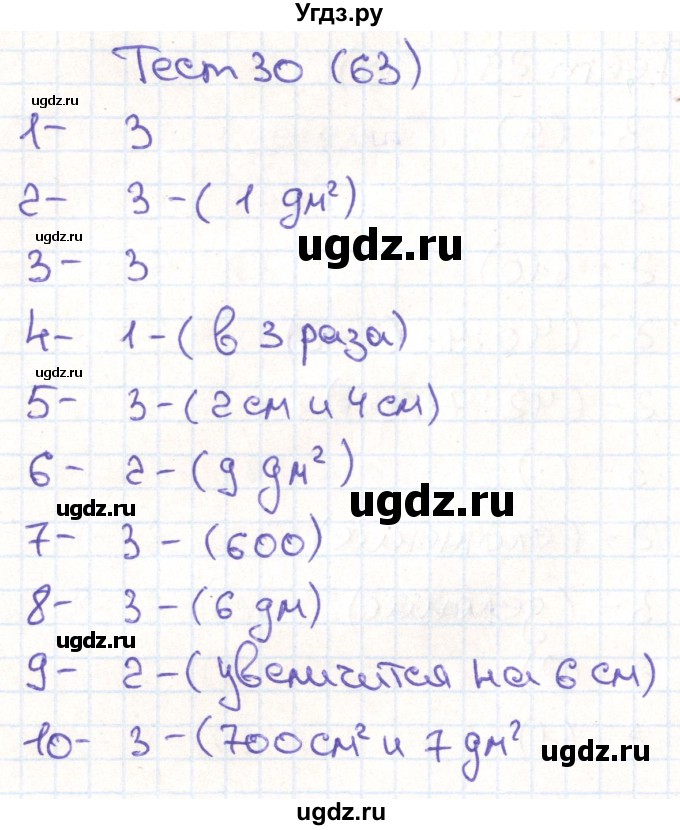 Угдз.ру
Тест 30 (63)
ugdz.ru
1- 3
2- 3-(1 дм²)
ugdz.ru
ugdz.ru
3- 3
4- 1-(в 3 раза)
ugdz.ru
5- 3-(2см и 4 см)
6- 2-(9 дм²)
ugdz.ru
ugdz.ru
7- 3-(600)
8- 3-(6 дм)
ugdz.ru
9- 2-(увеличится на 6 см)
10- 3-(700см² и 7 дм²
ugdz.ru
ugdz.ru